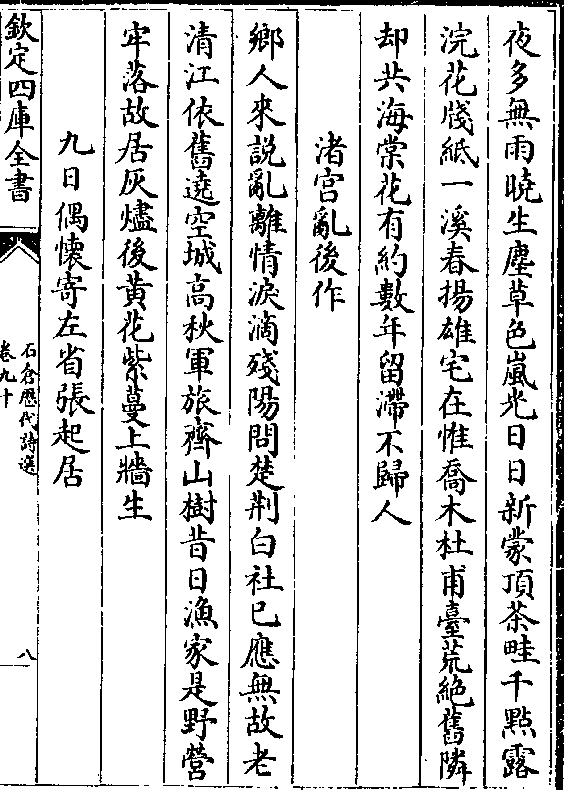 夜多無雨曉生塵草色嵐光日日新蒙頂茶畦千點露
浣花牋紙一溪春揚雄宅在惟喬木杜甫臺荒絶舊隣
却共海棠花有約數年留滯不歸人
渚宮亂後作
鄉人來說亂離情淚滴殘陽問楚荆白社已應無故老
清江依舊遶空城高秋軍旅齊山樹昔日漁家是野營
牢落故居灰燼後黃花紫蔓上牆生
九日偶懷寄左省張起居
欽定四庫全書
石倉歷代詩選
卷九十
八